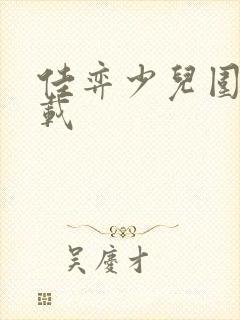 佳弈少兒圍
載
吴慶才